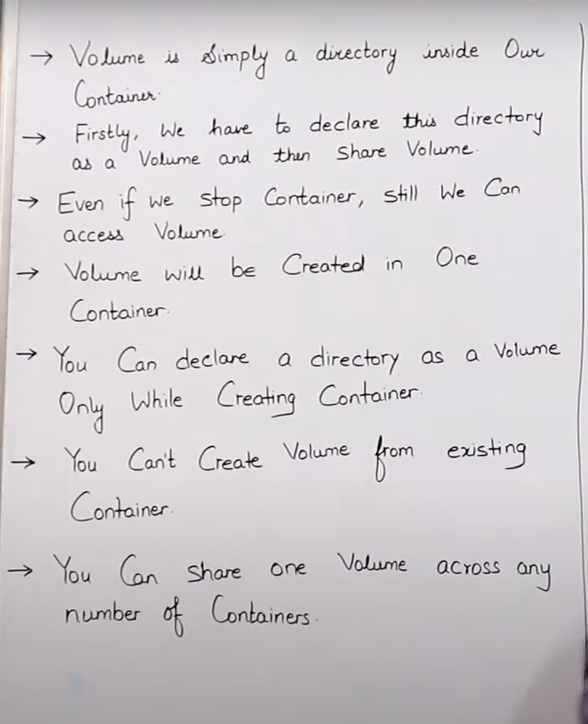 → Volume is Simply a directory inside Our
Container.
→ Firstly, We have to declare this directory
as a Volume and then Share Volume.
→ Even if we stop Container, still We Can
access Volume
→ Volume will be Created in One
Container.
→ You Can declare a directory as a Volume
Only While Creating Container.
→ You Can't Create Volume from existing
Container.
→ You Can Share one Volume across any
number of Containers.